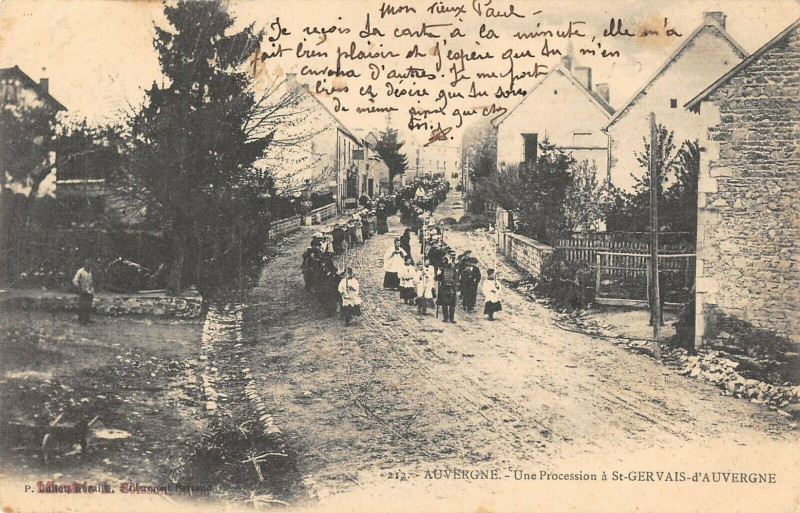 Mon vieux Paul —
Je reçois ta carte à la minute, elle m'a
fait bien plaisir et j'espère que tu m'en
enverra d'autres. Je me porte
bien et désire que tu sois
de même ainsi que chez
toi.
212. - AUVERGNE. - Une Procession à St-GERVAIS-d'AUVERGNE
P. Clermont Ferrand